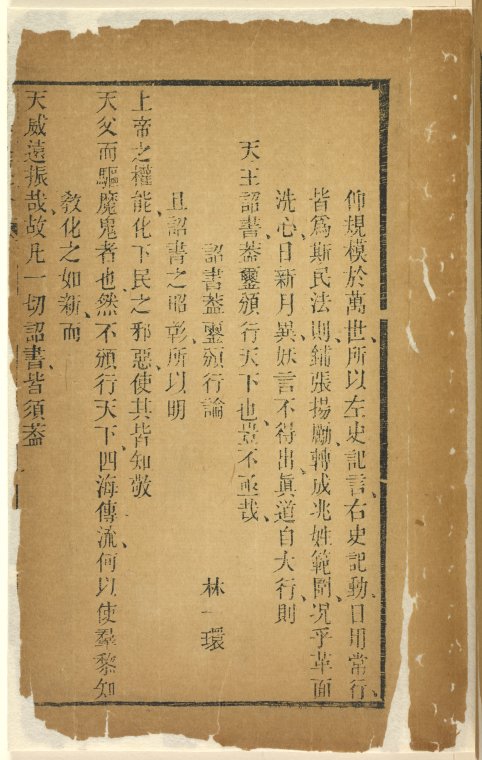 仰規模於萬世、所以左史記言、右史記動、日用常行、
皆爲斯民法則、鋪張揚勵、轉成兆姓範圍、况乎革面
洗心、日新月異、妖言不得出、眞道自大行、則
天王詔書、葢璽頒行天下也、豈不亟哉、
詔書葢璽頒行論 林一環
且詔書之昭彰、所以明
上帝之權能、化下民之邪惡、使其皆知敬
天父而驅魔鬼者也、然不頒行天下、四海傳流、何以使羣黎知
敎化之如新、而
天威遠振哉、故凡一切詔書、皆須葢